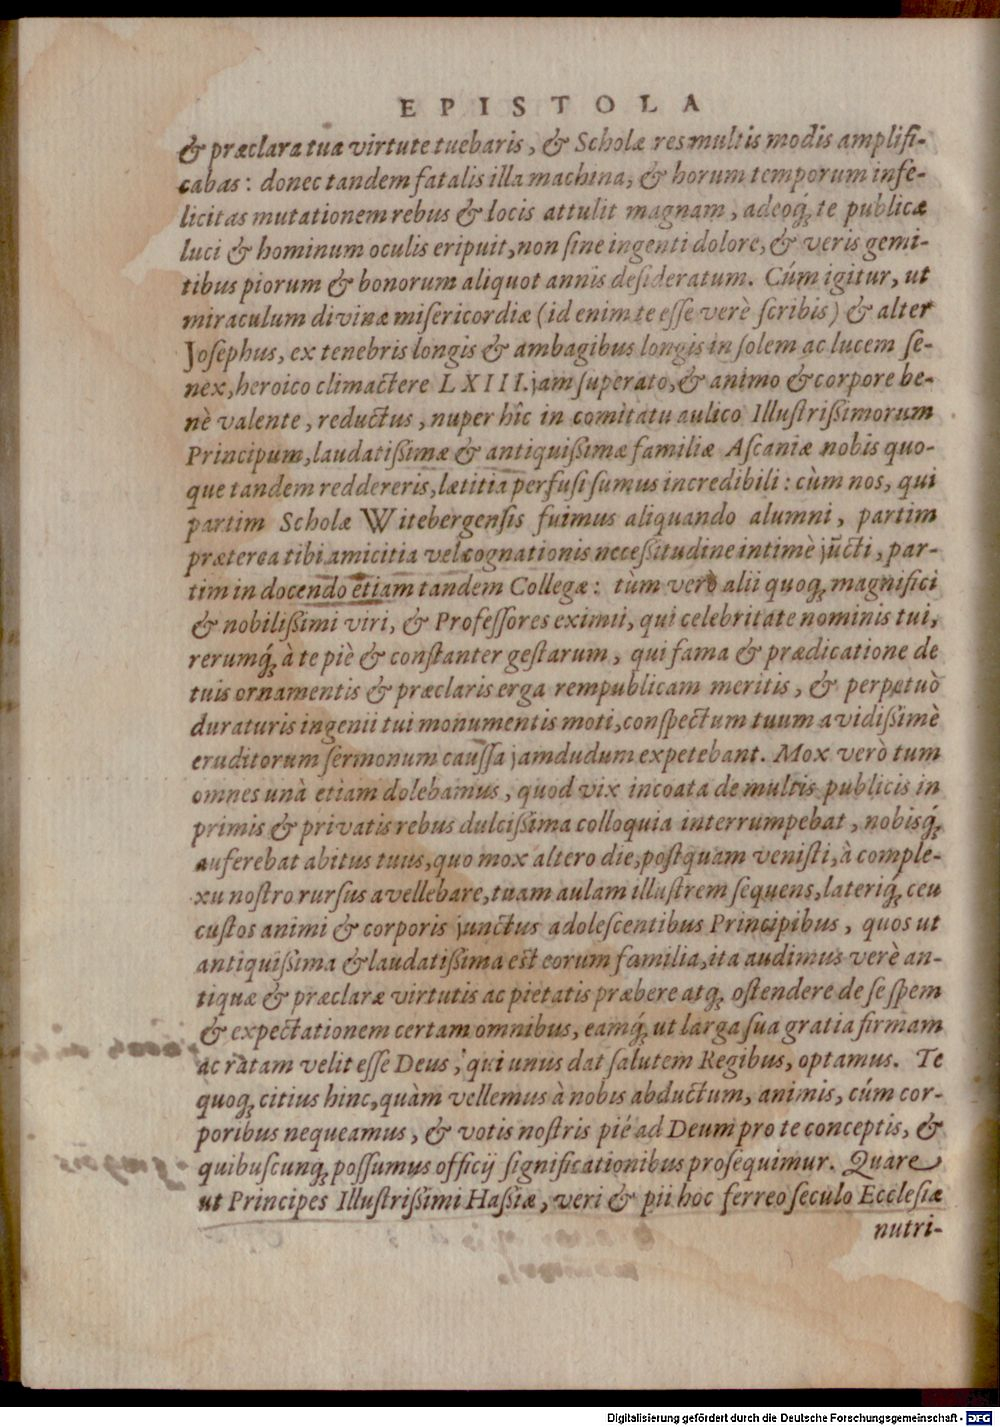 EPISTOLA
& præclara tua virtute tuebaris, & Scholæ res multis modis amplifi-
cabas: donec tandem fatalis illa machina, & horum temporum infe-
licitas mutationem rebus & locis attulit magnam, adeoq́ꝫ te publicæ
luci & hominum oculis eripuit, non ſine ingenti dolore, & veris gemi-
tibus piorum & bonorum aliquot annis deſideratum. Cúm igitur, ut
miraculum divinæ miſericordiæ (id enim te eſſe verè ſcribis) & alter
Joſephus, ex tenebris longis & ambagibus longis in ſolem ac lucem ſe-
nex, heroico climactere LXIII. jam ſuperato, & animo & corpore be-
nè valente, reductus, nuper hîc in comitatu aulico Illuſtriſſimorum
Principum, laudatiſſimæ & antiquiſſimæ familiæ Aſcaniæ nobis quo-
que tandem reddereris, lætitia perfuſi ſumus incredibili: cùm nos, qui
partim Scholæ Witebergenſis fuimus aliquando alumni, partim
præterea tibi amicitia vel cognationis neceſſitudine intimè jũcti, par-
tim in docendo etiam tandem Collegæ: tùm verò alii quoqꝫ magnifici
& nobiliſſimi viri, & Profeſſores eximii, qui celebritate nominis tui,
rerumq́ꝫ à te piè & conſtanter geſtarum, qui fama & prædicatione de
tuis ornamentis & præclaris erga rempublicam meritis, & perpetuò
duraturis ingenii tui monumentis moti, conſpectum tuum avidiſſimè
eruditorum ſermonum cauſſa jamdudum expetebant. Mox verò tum
omnes unà etiam dolebamus, quod vix incoata de multis publicis in
primis & privatis rebus dulciſſima colloquia interrumpebat, nobisq́ꝫ
auferebat abitus tuus, quo mox altero die, poſtquam veniſti, à comple-
xu noſtro rurſus avellebare, tuam aulam illuſtrem ſequens, lateriq́ꝫ ceu
cuſtos animi & corporis junctus adoleſcentibus Principibus, quos ut
antiquiſſima & laudatiſſima est eorum familia, ita audimus verè an-
tiquæ & præclaræ virtutis ac pietatis præbere atqꝫ oſtendere de ſe ſpem
& expectationem certam omnibus, eamq́ꝫ ut larga ſua gratia firmam
ac ratam velit eſſe Deus, qui unus dat ſalutem Regibus, optamus. Te
quoqꝫ citius hinc, quàm vellemus à nobis abductum, animis, cúm cor-
poribus nequeamus, & votis noſtris pié ad Deum pro te conceptis, &
quibuſcunqꝫ poſſumus officij ſignificationibus proſequimur. Quare
ut Principes Illuſtriſſimi Haſſiæ, veri & pii hoc ferreo ſeculo Eccleſiæ
nutri-
Digitalisierung gefördert durch die Deutsche Forschungsgemeinschaft - DFG